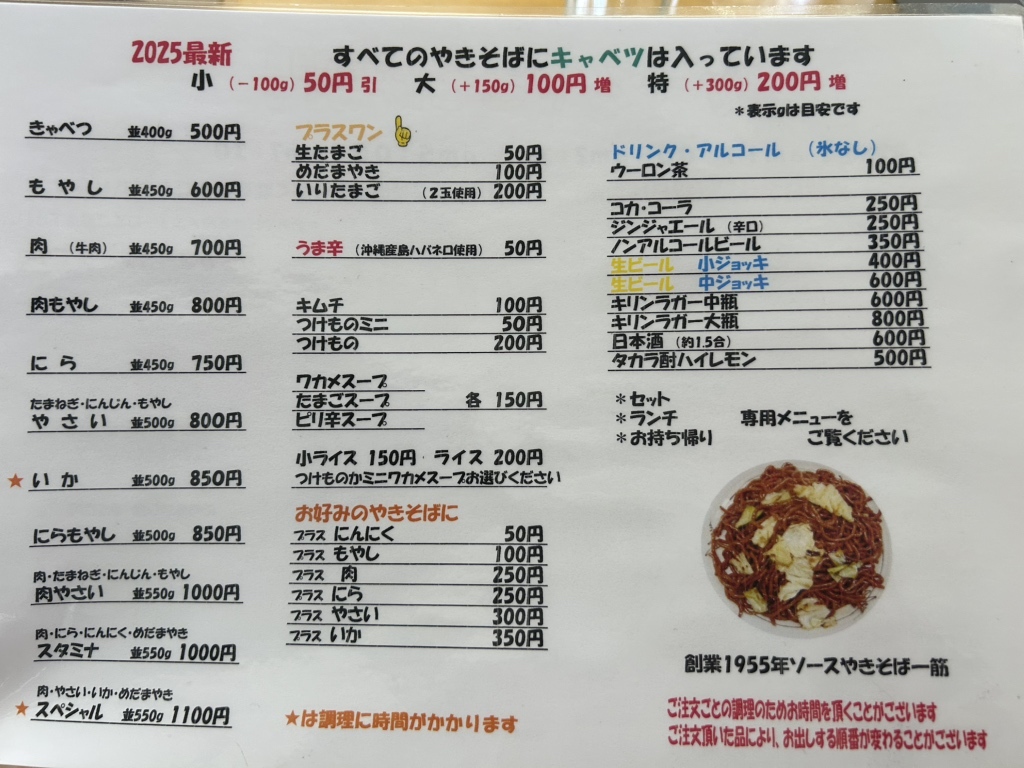 2025最新 すべてのやきそばにキャベツは入っています
小 (-100g) 50円引 大 (+150g) 100円増 特 (+300g) 200円増
*表示gは目安です
きゃべつ 並400g 500円
もやし 並450g 600円
肉 (牛肉) 並450g 700円
肉もやし 並450g 800円
にら 並450g 750円
たまねぎ・にんじん・もやし
やさい 並500g 800円
★いか 並500g 850円
にらもやし 並500g 850円
肉・たまねぎ・にんじん・もやし
肉やさい 並550g 1000円
肉・にら・にんにく・めだまやき
スタミナ 並550g 1000円
肉・やさい・いか・めだまやき
★スペシャル 並550g 1100円
プラスワン
生たまご 50円
めだまやき 100円
いりたまご (2玉使用) 200円
うま辛 (沖縄産島ハバネロ使用) 50円
キムチ 100円
つけものミニ 50円
つけもの 200円
ワカメスープ
たまごスープ 各 150円
ピリ辛スープ
小ライス 150円 ライス 200円
つけものかミニワカメスープお選びください
お好みのやきそばに
プラス にんにく 50円
プラス もやし 100円
プラス 肉 250円
プラス にら 250円
プラス やさい 300円
プラス いか 350円
★は調理に時間がかかります
ドリンク・アルコール (氷なし)
ウーロン茶 100円
コカ・コーラ 250円
ジンジャエール (辛口) 250円
ノンアルコールビール 350円
生ビール 小ジョッキ 400円
生ビール 中ジョッキ 600円
キリンラガー中瓶 600円
キリンラガー大瓶 800円
日本酒 (約1.5合) 600円
タカラ酎ハイレモン 500円
*セット
*ランチ 専用メニューを
*お持ち帰り ご覧ください
創業1955年ソースやきそば一筋
ご注文ごとの調理のためお時間を頂くことがございます
ご注文頂いた品により、お出しする順番が変わることがございます